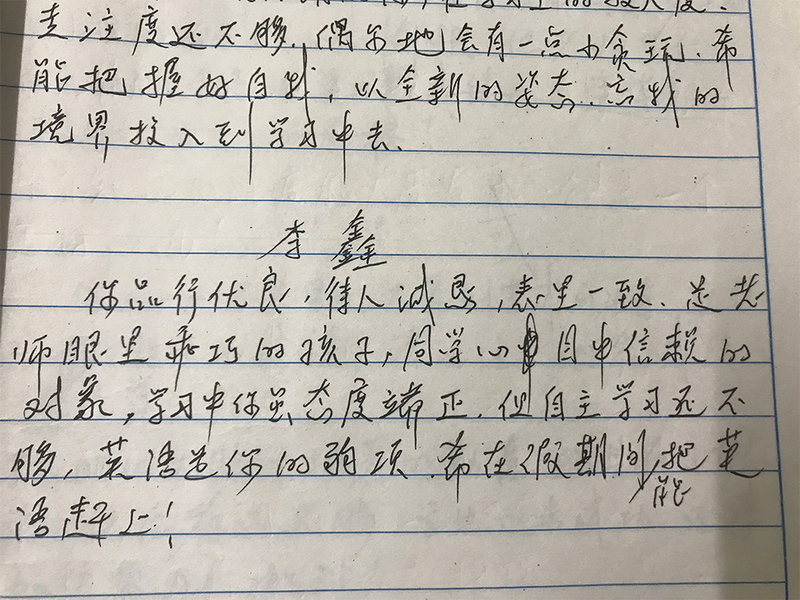 专注度还不够,偶尔地会有一点小贪玩、希
能把握好自我,以全新的姿态、忘我的
境界,投入到学习中去.
李鑫
你品行优良,待人诚恳,表里一致、是老
师眼里乖巧的孩子,同学心目中信赖的
对象,学习中你虽态度端正.但自主学习还不
够,英语是你的弱项.希在假期间,能把英
语赶上!